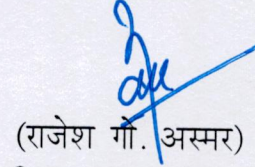 (राजेश गो. अस्मर)